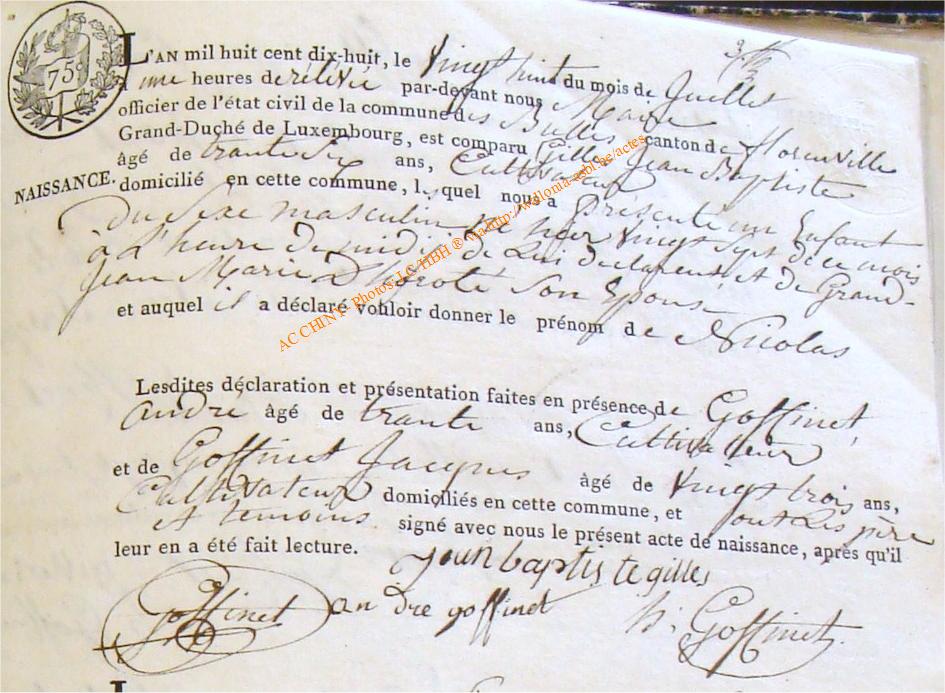 75
L'AN mil huit cent dix-huit, le vingt huit du mois de Juillet
à une heures de relevée par-devant nous Maire
officier de l'état civil de la commune des Bulles canton de florenville
Grand-Duché de Luxembourg, est comparu Gilles Jean Baptiste
âgé de trante six ans, Cultivateur
NAISSANCE.
domicilié en cette commune, lequel nous a présenté un Enfant
du Sexe masculin né hier vingt sept de ce mois
à L'heure de midi, de Lui declarent et de Grand-
Jean Marie Son Epouse
et auquel il a déclaré vouloir donner le prénom de Nicolas
AC CHINY - Photos LC/HBH ® via http://wallonia-asbl.be/actes
Lesdites déclaration et présentation faites en présence de Goffinet
andré âgé de trante ans, Cultivateur
et de Goffinet Jacques âgé de vingt trois ans,
Cultivateur domiciliés en cette commune, et ont Les père
et temoins signé avec nous le présent acte de naissance, après qu'il
leur en a été fait lecture.
jean baptis te gilles
Goffinet an dre goffinet h. Goffinet